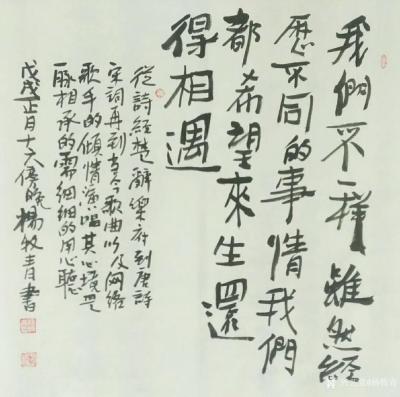 我們不一樣雖然經
歷不同的事情我們
都希望來生還
得相遇
從詩經楚辭樂府到唐詩
宋詞再到今歌曲以及网络
歌手的傾情演唱其心境是
一脈相承的需細細的用心聽
戊戌正月十六傍晚楊牧青書